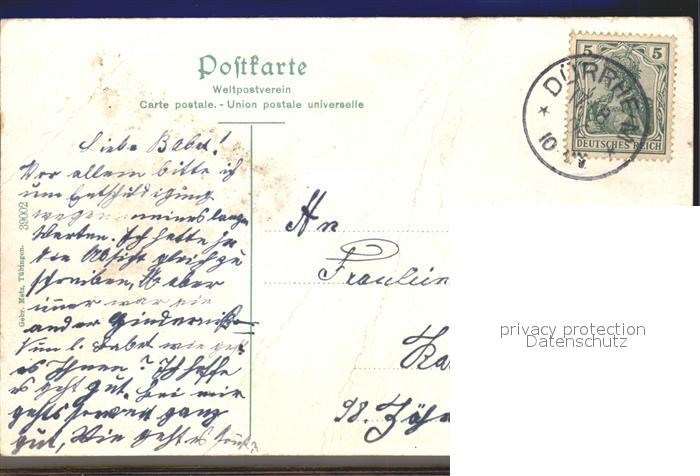 Postkarte
Weltpostverein
Carte postale. - Union postale universelle
5 5
DEUTSCHES REICH
DÜRRHEIM
Liebe Babet!
Vor allem bitte ich
um Entschuldigung
wegen meines lange
Warten. Ich hatte ja
die Absicht gleich zu
schreiben, aber
immer war ein
ander Hindernis
Nun l. Babet wie geht
es Ihnen? Ich hoffe
es geht gut. Bei mir
gehts soweit ganz
gut, Wie geht es sonst?
An
Fräulein
98. Zähr
Gebr. Metz, Tübingen. 39002
privacy protection
Datenschutz